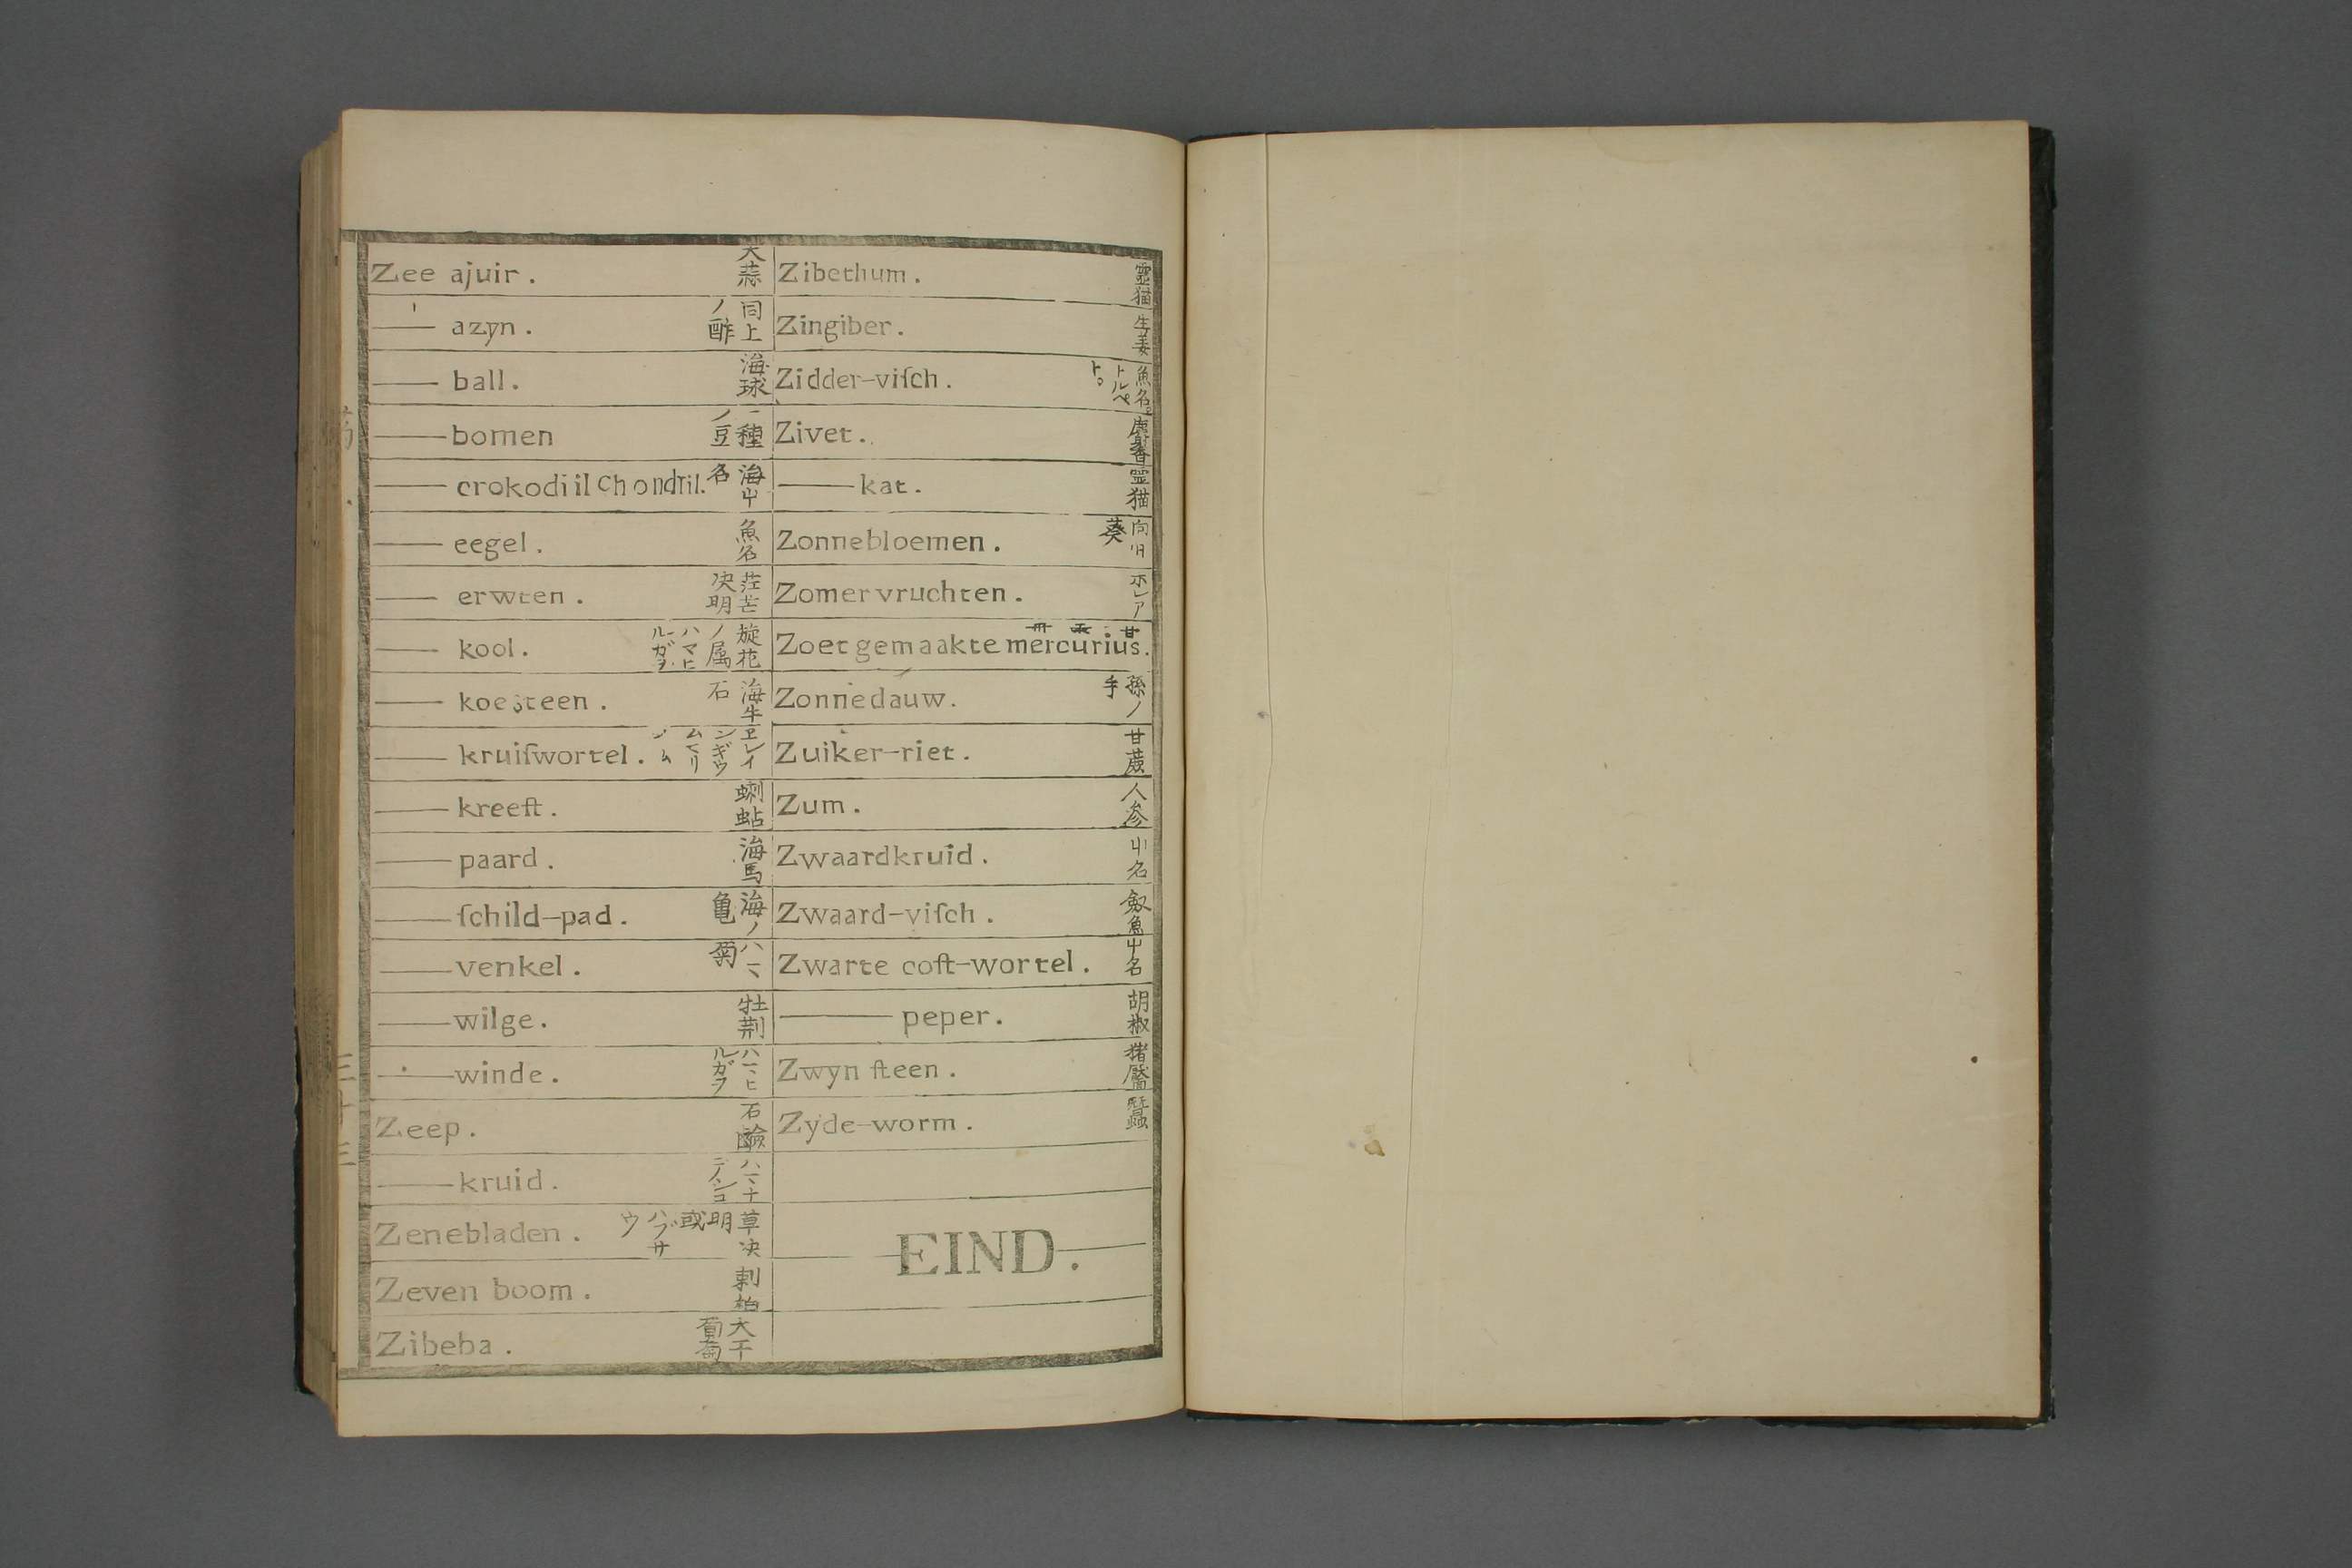 Zee ajuir. 大蒜
—— azyn. 同上ノ酢
—— ball. 海球
—— bomen 一種ノ豆
—— crokodiil Chondril. 海屮名
—— eegel. 魚名
—— erwten. 茳芒決明
—— kool. 旋花ノ属 ハマヒルガヲ
—— koesteen. 海牛石
—— kruiſwortel.
—— kreeſt. 蝲蛄
—— paard. 海馬
—— ſchild-pad. 海ノ亀
—— venkel. ハマ菊
—— wilge. 牡荊
—— winde. ハマヒルガヲ
Zeep. 石鹸
—— kruid.
Zenebladen. 草决明或ハブサウ
Zeven boom. 刺柏
Zibeba. 大干葡萄
Zibethum. 霊猫
Zingiber. 生姜
Zidder-viſch. 魚名。トルペト。
Zivet. 麝香
—— kat. 霊猫
Zonnebloemen. 向日葵
Zomer vruchten. ホレア
Zoet gemaakte mercurius. 甘汞
Zonnedauw. 孫ノ手
Zuiker-riet. 甘蔗
Zum. 人参
Zwaardkruid. 屮名
Zwaard-viſch. 劔魚
Zwarte coſt-wortel. 屮名
—— peper. 胡椒
Zwyn ſteen. 猪靨
Zyde-worm. 蠶
EIND.